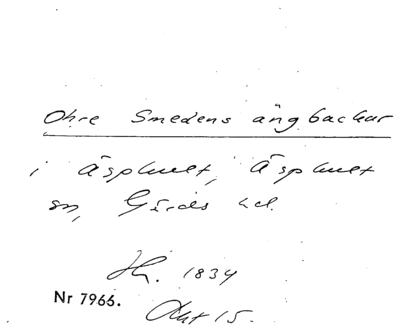 Ohre Smedens ängbackar
i Äsphult, Äsphult
sn, Gärds hd.
Hr. 1834
Nr 7966.
Akt 15.